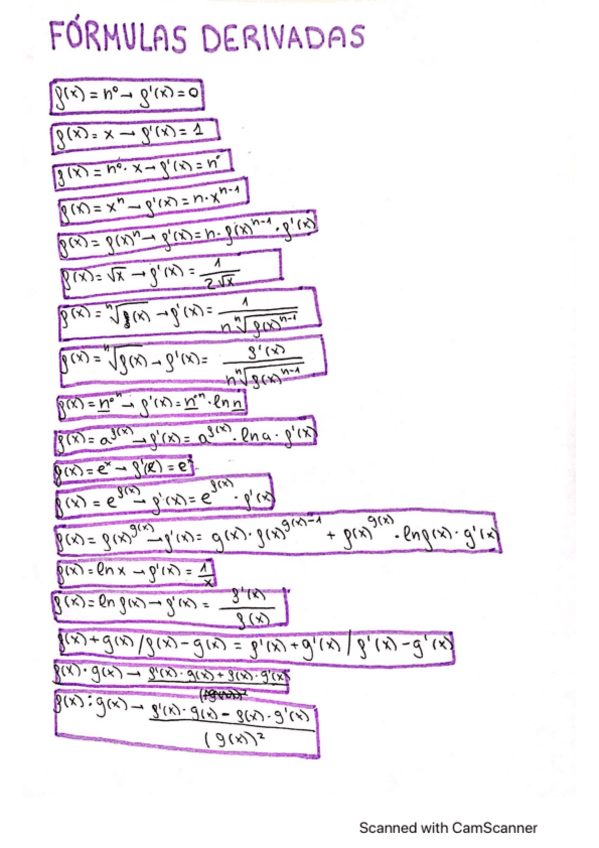 FÓRMULAS DERIVADAS
f(x) = nº → f'(x) = 0
f(x) = x → f'(x) = 1
f(x) = nº · x → f'(x) = nº
f(x) = xⁿ → f'(x) = n · xⁿ⁻¹
f(x) = f(x)ⁿ → f'(x) = n · f(x)ⁿ⁻¹ · f'(x)
f(x) = √x → f'(x) = 1 / 2√x
f(x) = ⁿ√f(x) → f'(x) = 1 / n ⁿ√f(x)ⁿ⁻¹
f(x) = ⁿ√f(x) → f'(x) = f'(x) / n ⁿ√f(x)ⁿ⁻¹
f(x) = nºⁿ → f'(x) = nºⁿ · ln n
f(x) = a^f(x) → f'(x) = a^f(x) · ln a · f'(x)
f(x) = eˣ → f'(x) = eˣ
f(x) = e^f(x) → f'(x) = e^f(x) · f'(x)
f(x) = f(x)^g(x) → f'(x) = g(x) · f(x)^g(x)-1 + f(x)^g(x) · ln f(x) · g'(x)
f(x) = ln x → f'(x) = 1 / x
f(x) = ln f(x) → f'(x) = f'(x) / f(x)
f(x) + g(x) / f(x) - g(x) = f'(x) + g'(x) / f'(x) - g'(x)
f(x) · g(x) → f'(x) · g(x) + f(x) · g'(x)
f(x) : g(x) → f'(x) · g(x) - f(x) · g'(x) / (g(x))²
Scanned with CamScanner